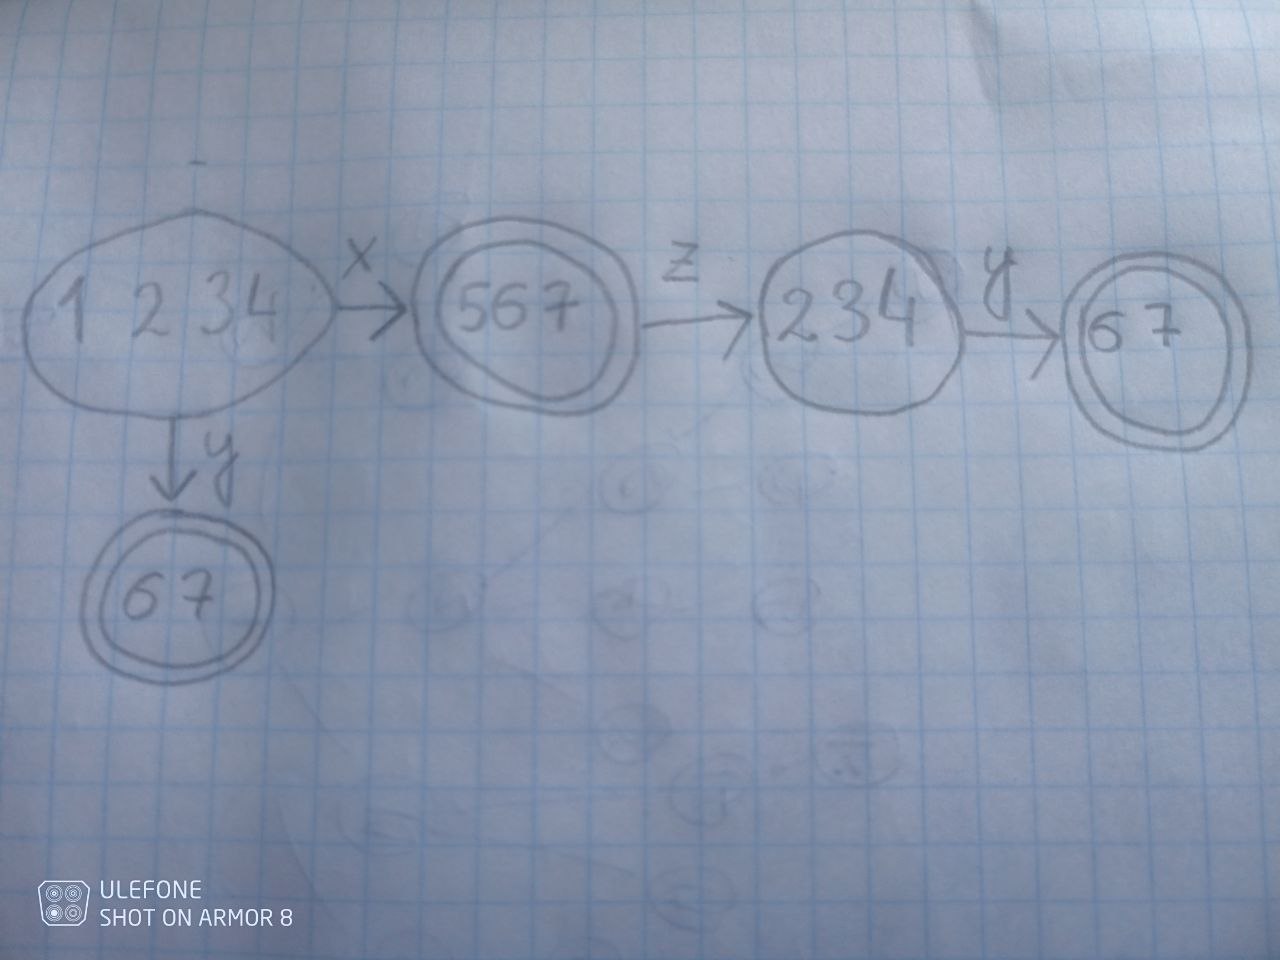 x z y
1 2 3 4 5 6 7 2 3 4 6 7
y
6 7
ULEFONE
SHOT ON ARMOR 8